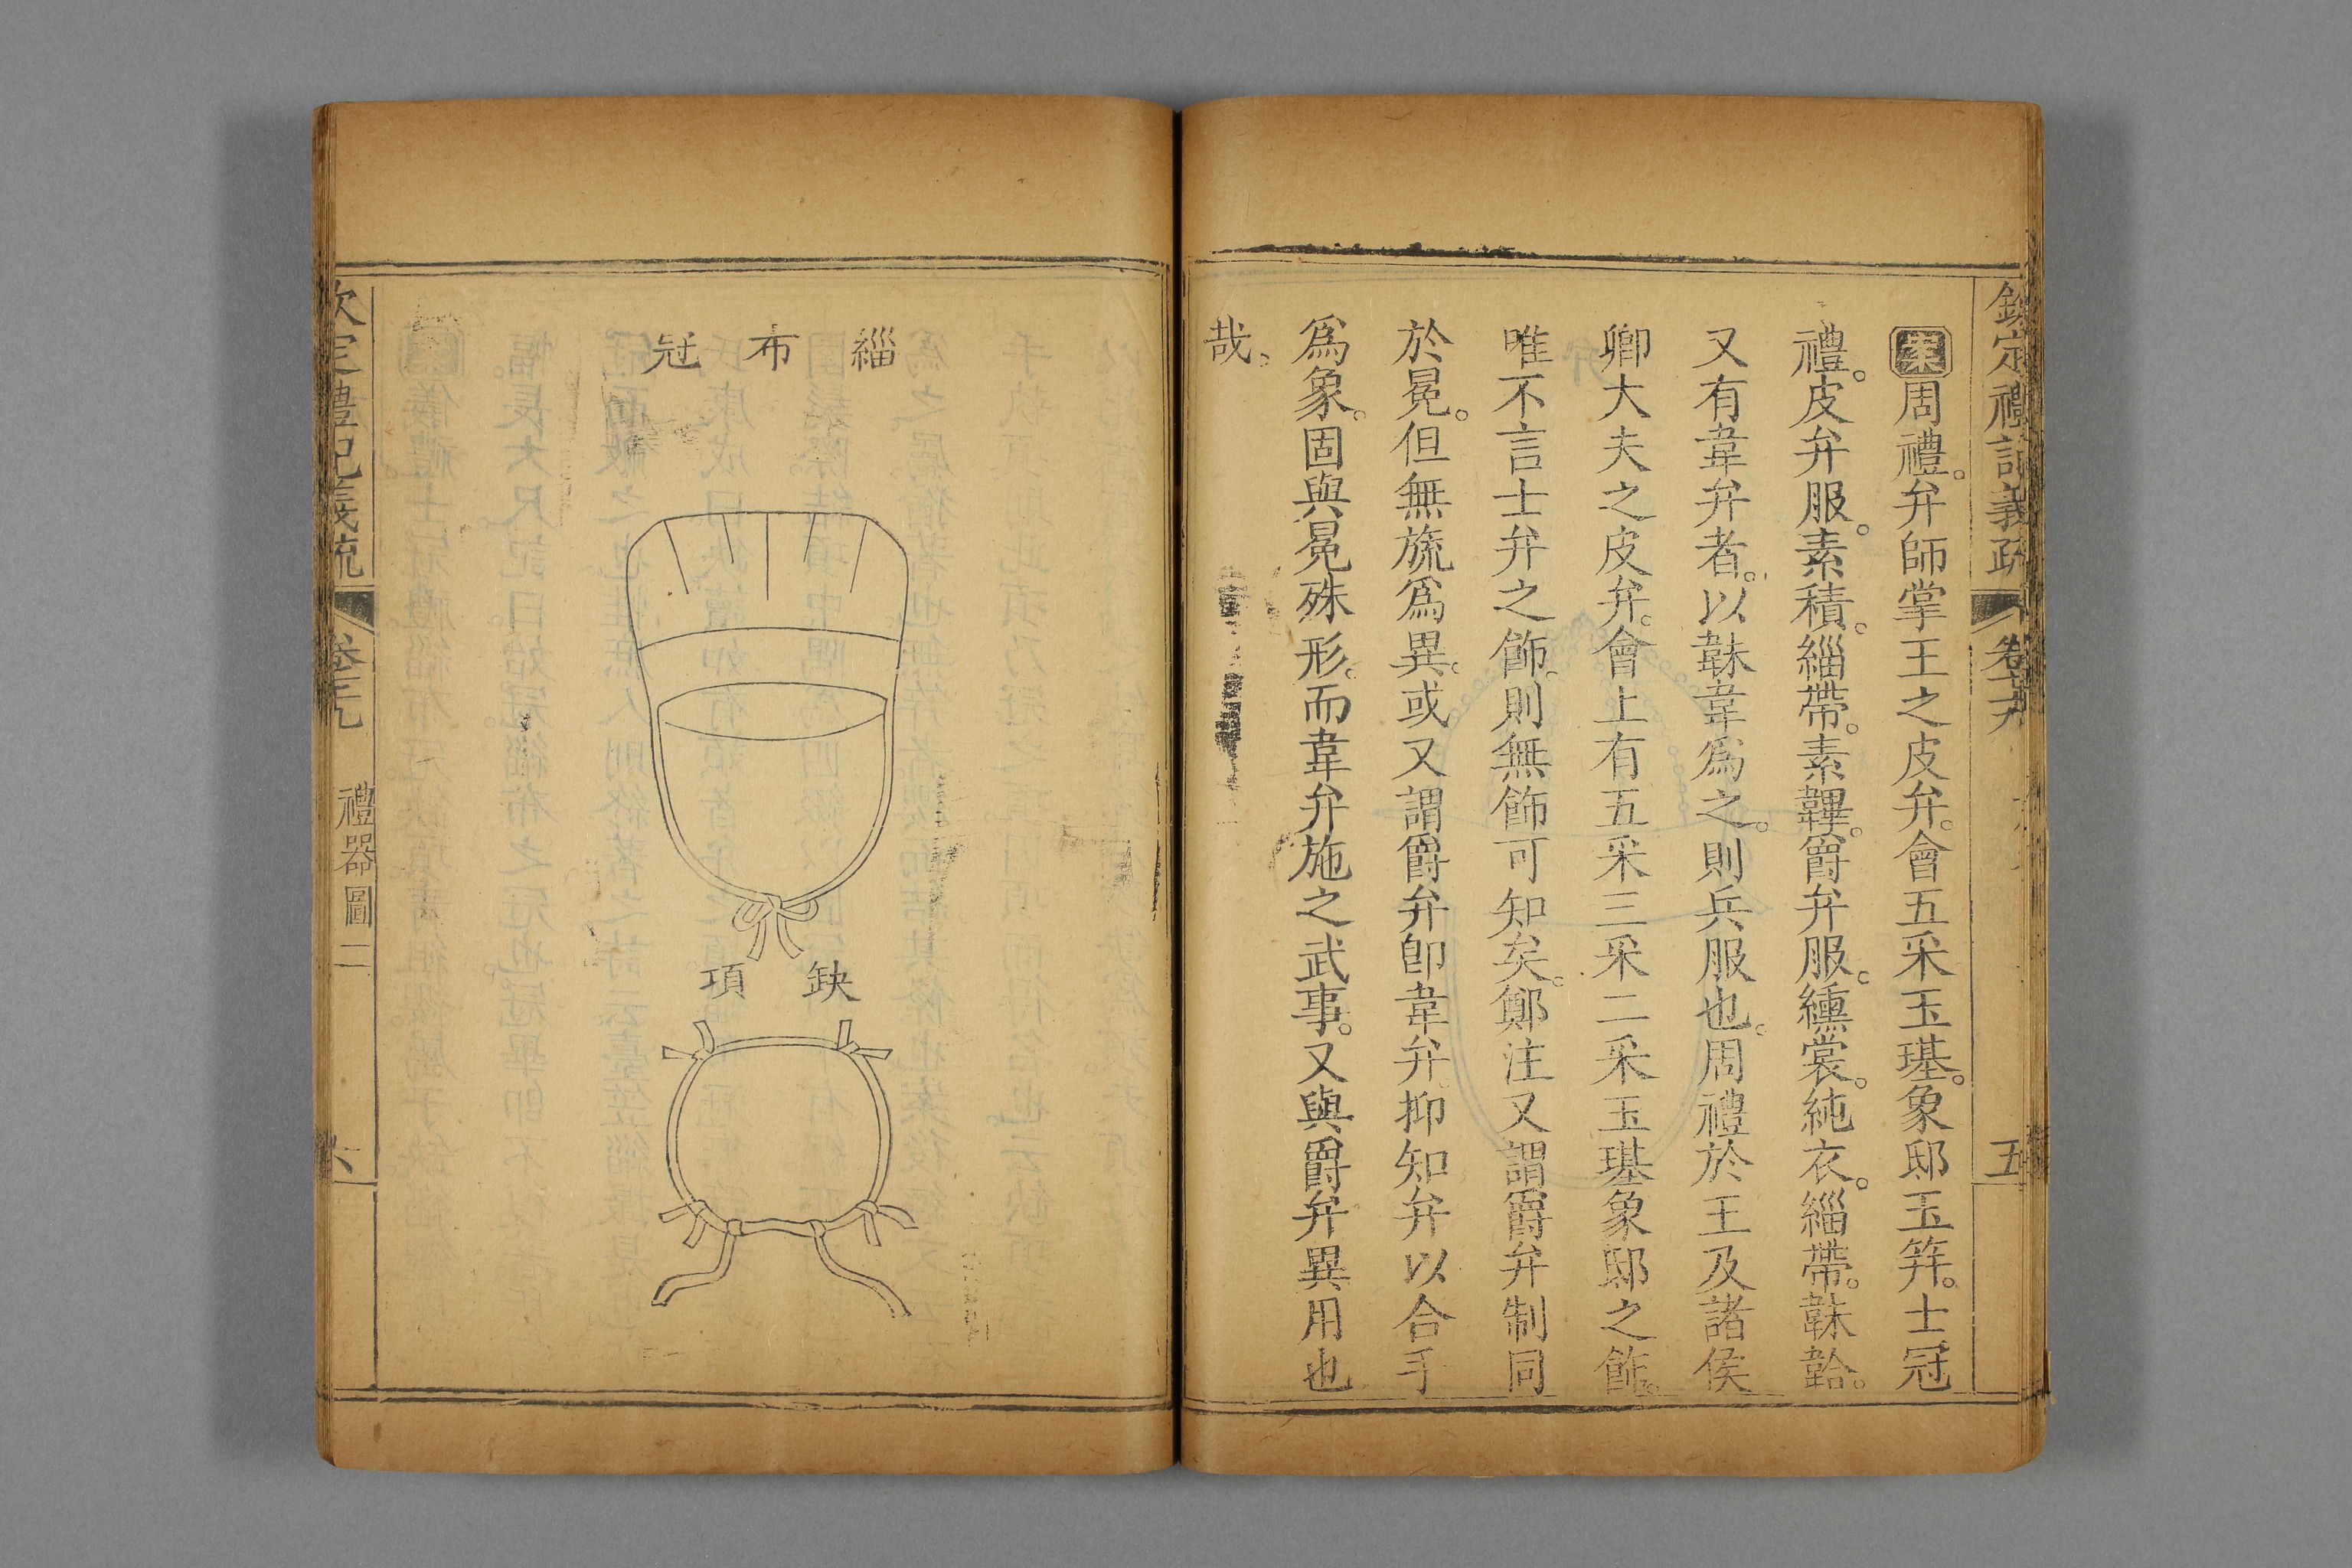 欽定禮記義疏 卷 五
案周禮。弁師掌王之皮弁。會五采玉璂。象邸玉笄。士冠
禮。皮弁服。素積。緇帶。素韠。爵弁服。纁裳。純衣。緇帶。韎韐。
又有韋弁者。以韎韋爲之。則兵服也。周禮於王及諸侯
卿大夫之皮弁。會上有五采三采二采玉璂象邸之飾。
唯不言士弁之飾。則無飾可知矣。鄭注又謂爵弁制同
於冕。但無旒爲異。或又謂爵弁卽韋弁。抑知弁以合手
爲象。固與冕殊形。而韋弁施之武事。又與爵弁異用也
哉。
緇布冠
缺項
欽定禮記義疏 卷 禮器圖二 六